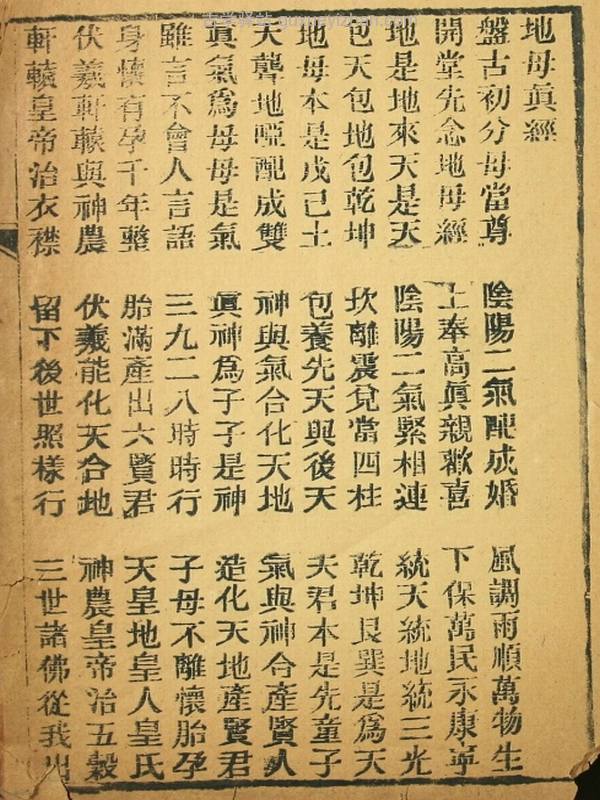 地母眞經
盤古初分母當尊 陰陽二氣配成婚 風調雨順萬物生
開堂先念地母經 上奉高眞親歡喜 下保萬民永康寧
地是地來天是天 陰陽二氣緊相連 統天統地統三光
包天包地包乾坤 坎離震兌當四柱 乾坤艮巽是爲天
地母本是戊己土 包養先天與後天 天君本是先童子
天聾地啞配成雙 神與氣合化天地 氣與神合產賢人
眞氣爲母母是氣 眞神爲子子是神 造化天地產賢君
雖言不會人言語 三九二八時時行 子母不離懷胎孕
身懷有孕千年整 胎滿產出六賢君 天皇地皇人皇氏
伏羲軒轅與神農 伏羲能化天合地 神農皇帝治五穀
軒轅皇帝治衣襟 留下後世照樣行 三世諸佛從我出